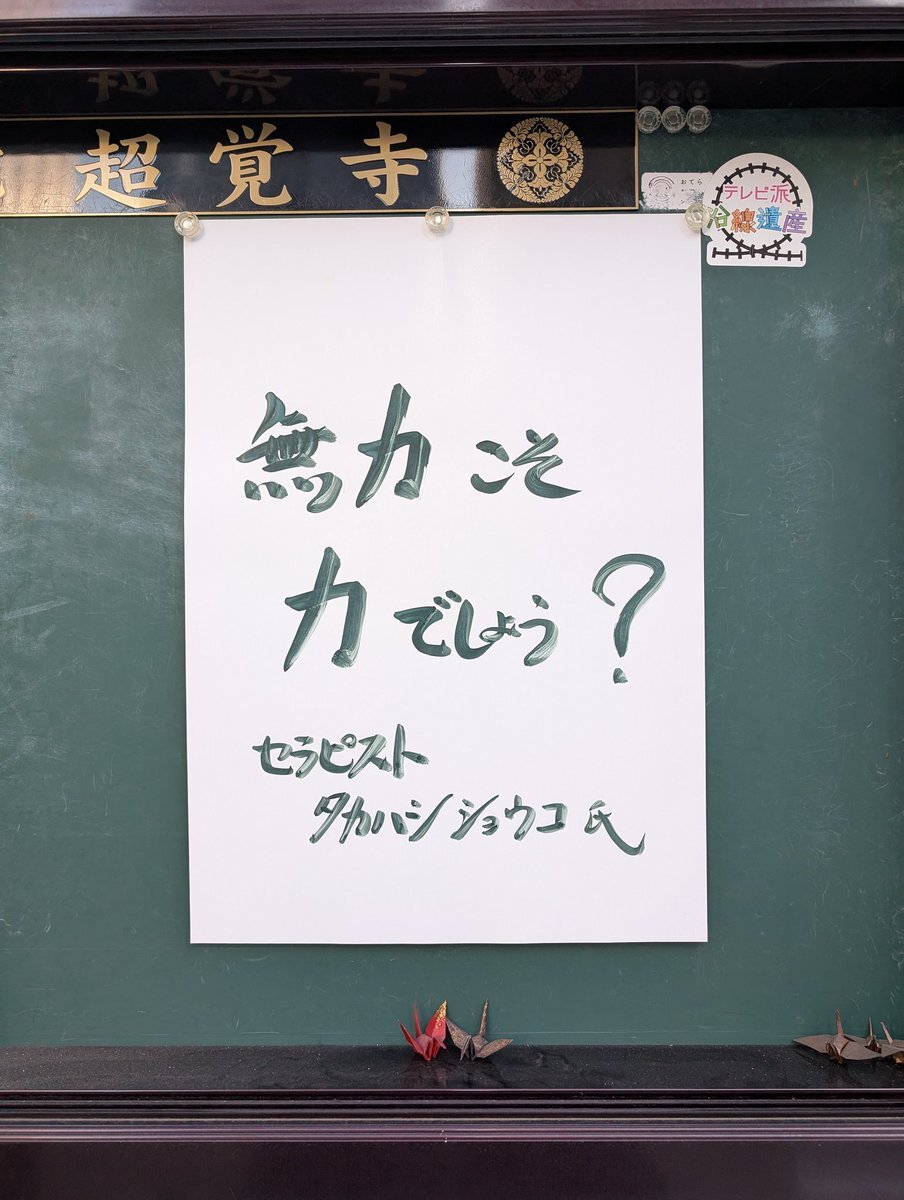 超覚寺
おてら
テレビ派
沿線遺産
無力こそ
力でしょう?
セラピスト
タカハシショウコ氏